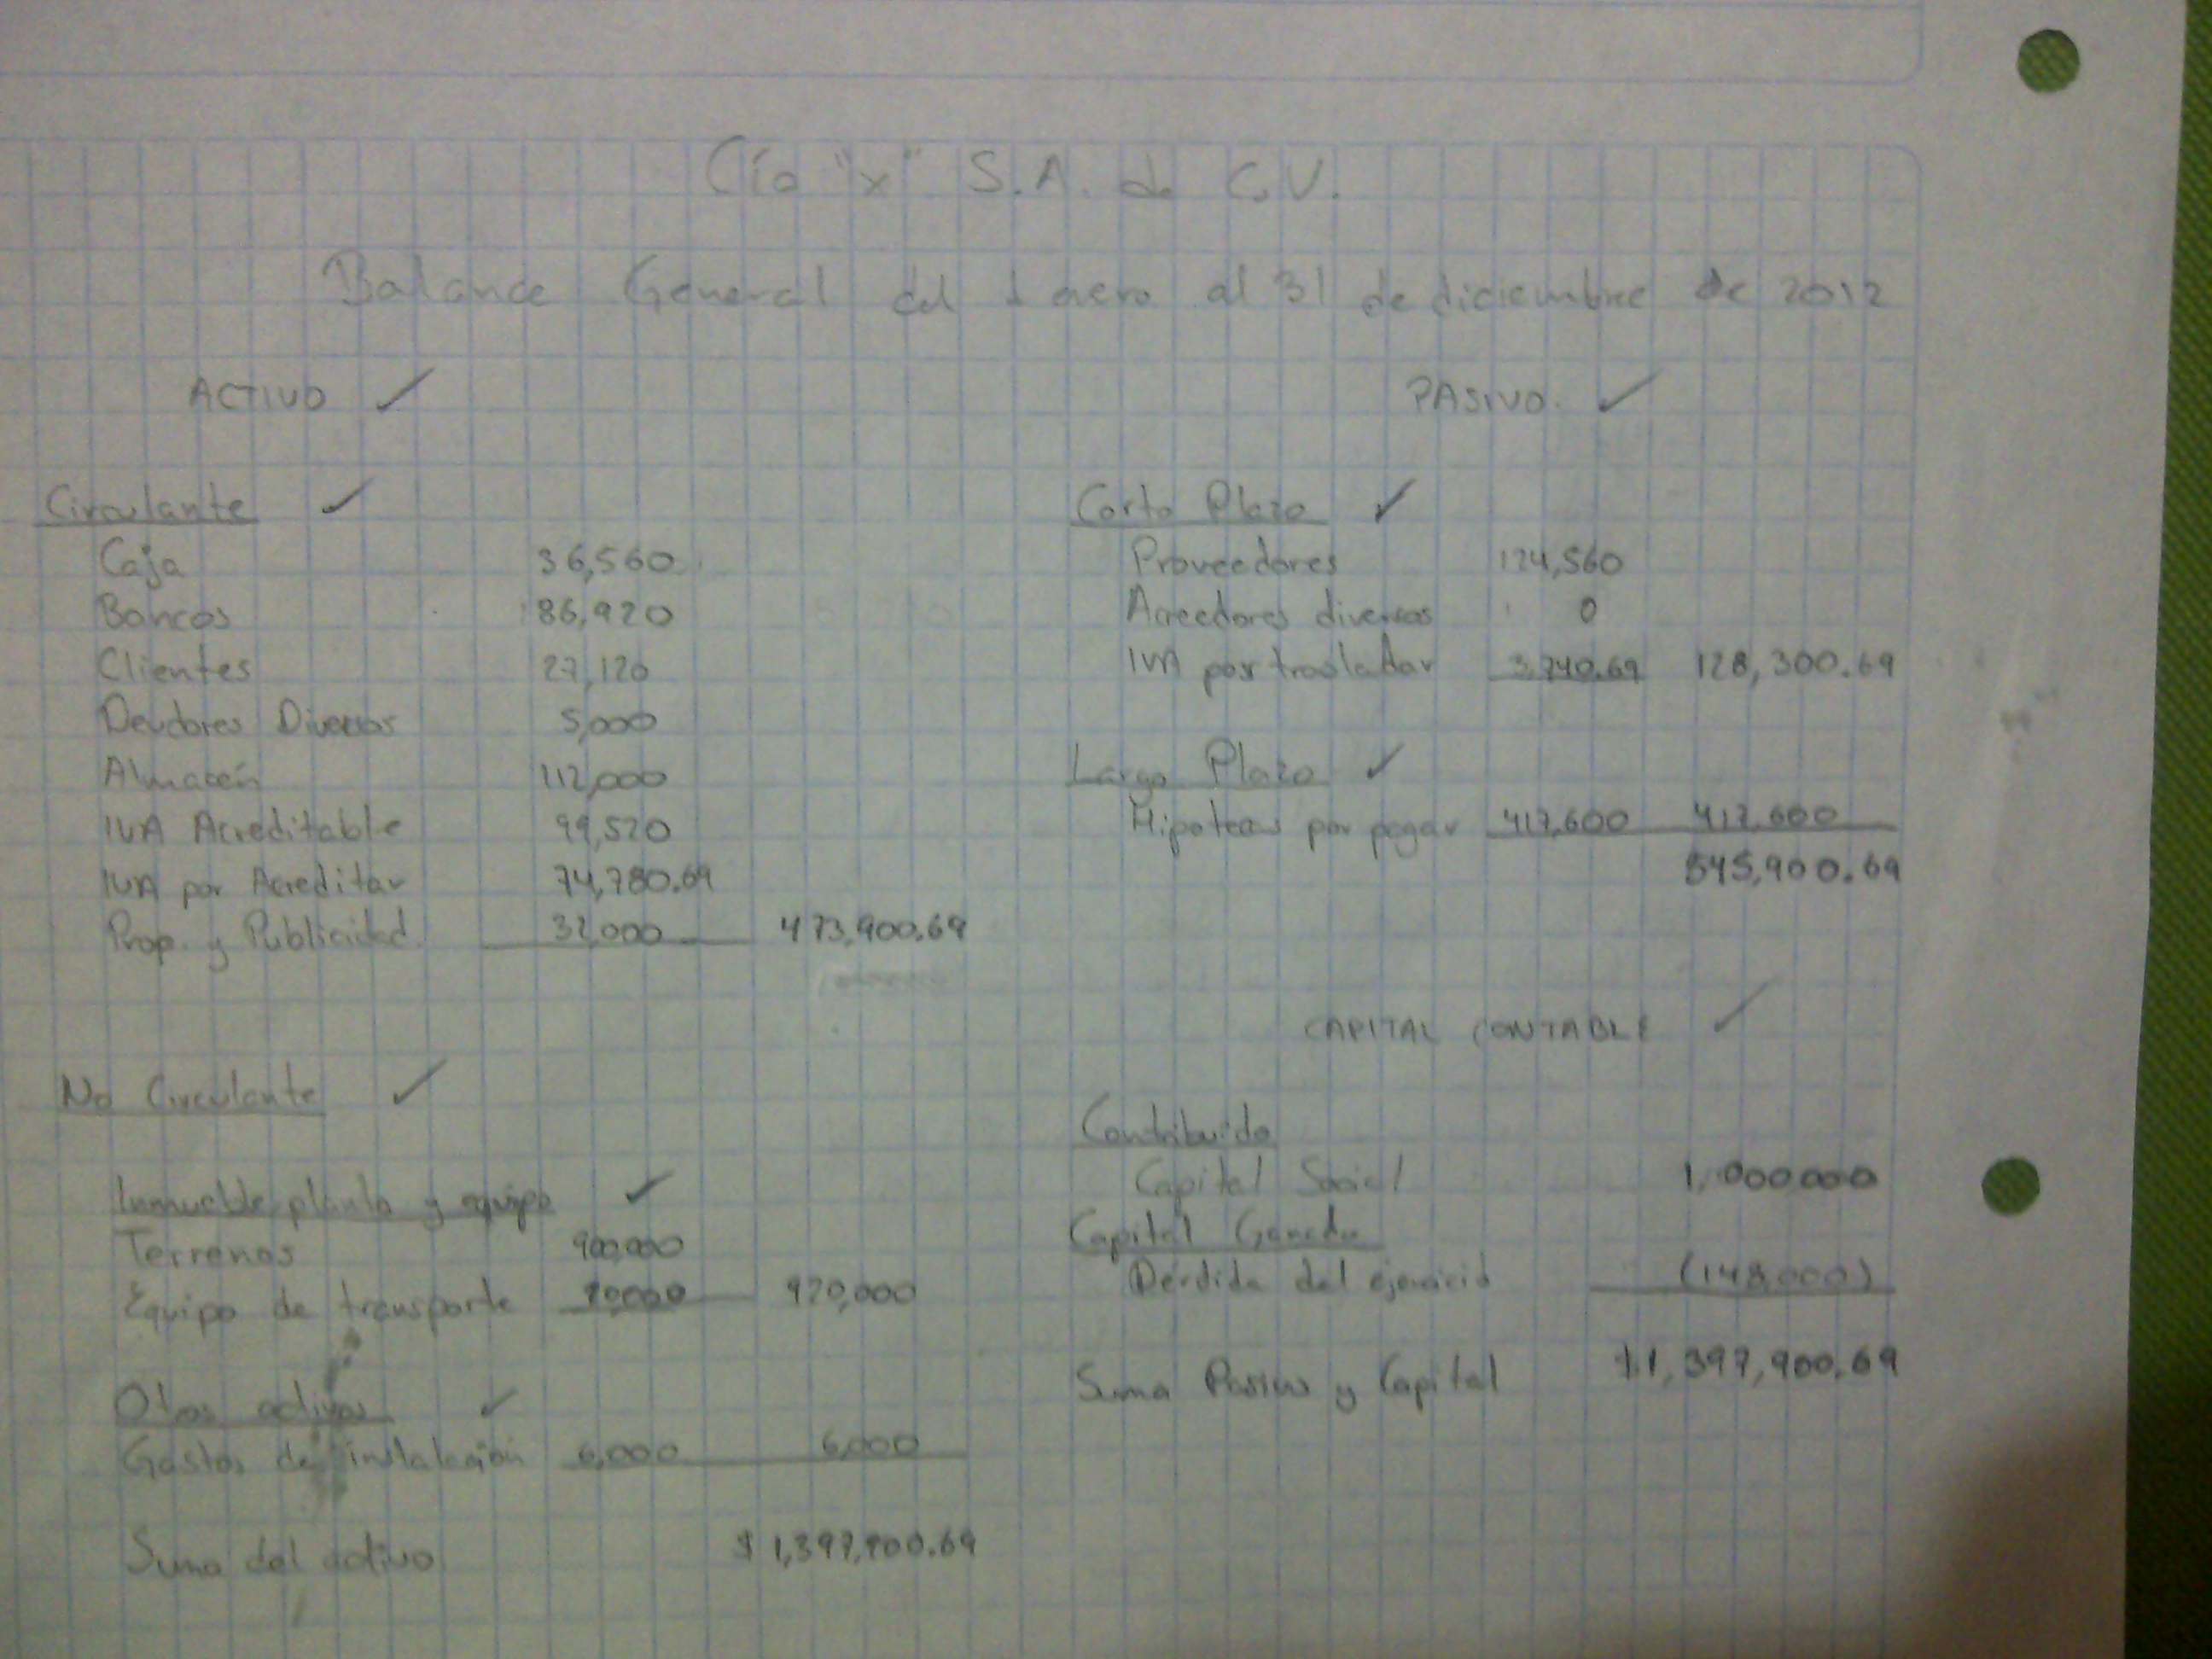 Cía "X" S.A. de C.V.
Balance General del 1 enero al 31 de diciembre de 2012
ACTIVO
Circulante
Caja 36,560
Bancos 86,920
Clientes 27,120
Deudores Diversos 5,000
Almacén 112,000
IVA Acreditable 99,520
IVA por Acreditar 74,780.69
Prop. y Publicidad 32,000 473,900.69
No Circulante
Inmueble, planta y equipo
Terrenos 900,000
Equipo de transporte 20,000 920,000
Otros activos
Gastos de instalación 6,000 6,000
Suma del activo $1,399,900.69
PASIVO
Corto Plazo
Proveedores 124,560
Acreedores diversos 0
IVA por trasladar 3,740.69 128,300.69
Largo Plazo
Hipotecas por pagar 417,600 417,600
545,900.69
CAPITAL CONTABLE
Contribuido
Capital Social 1,000,000
Capital Ganado
Pérdida del ejercicio (146,000)
Suma Pasivo y Capital $1,399,900.69